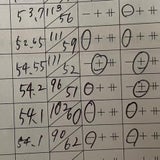 53.7 113/56 - + ++
52.65 111/59 - + ++
54.55 111/52 - + ++
54.2 96/51 - + ++
54.1 102/60 - + ++
54.1 90/62 - + ++